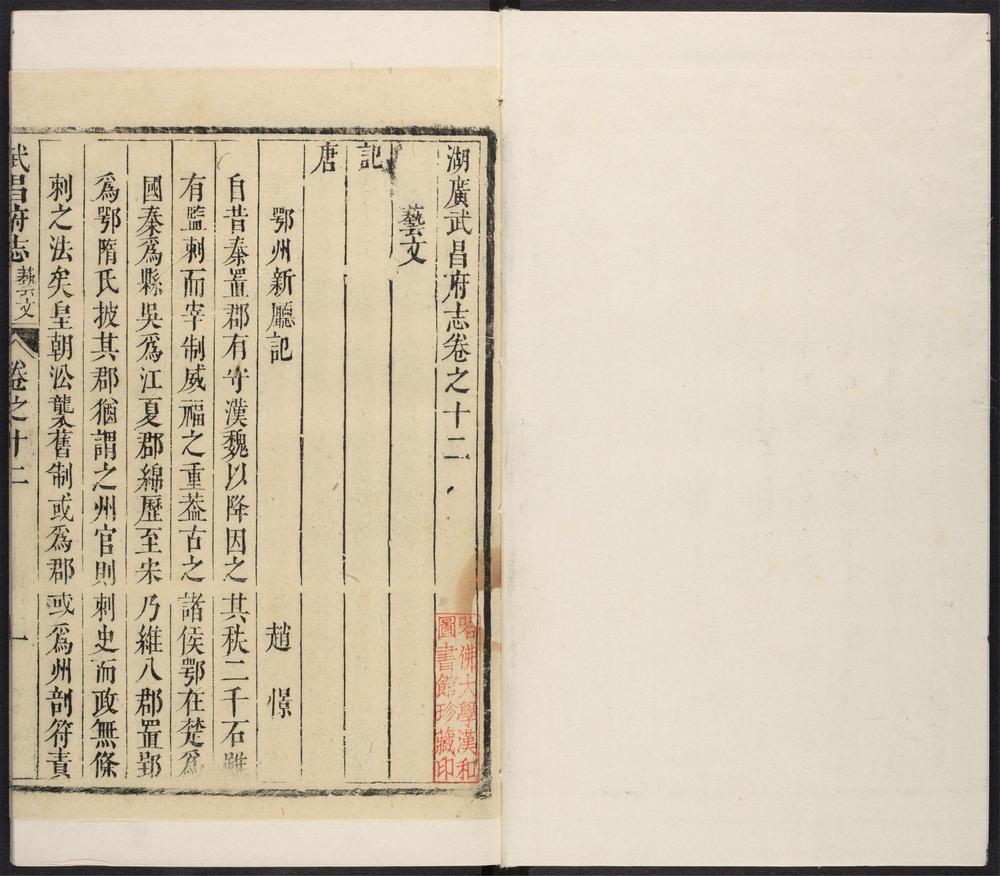 湖廣武昌府志卷之十二
藝文
記
唐
鄂州新廳記 趙憬
自昔秦置郡有守漢魏以降因之其秩二千石雖
有監刺而宰制威福之重葢古之諸侯鄂在楚爲
國秦爲縣吳爲江夏郡綿歷至宋乃維八郡置郢
爲鄂隋氏披其郡猶謂之州官則刺史而政無條
刺之法矣皇朝㳂襲舊制或爲郡或爲州剖符責
武昌府志 藝文 卷之十二 一
哈佛大學漢和
圖書館珍藏印